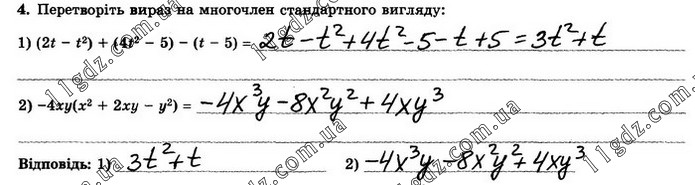 4. Перетворіть вираз на многочлен стандартного вигляду:
1) (2t – t²) + (4t² – 5) – (t – 5) = 2t – t² + 4t² – 5 – t + 5 = 3t² + t
2) –4xy(x² + 2xy – y²) = –4x³y – 8x²y² + 4xy³
Відповідь: 1) 3t² + t 2) –4x³y – 8x²y² + 4xy³
11gdz.com.ua
11gdz.com.ua
11gdz.com.ua
11gdz.com.ua